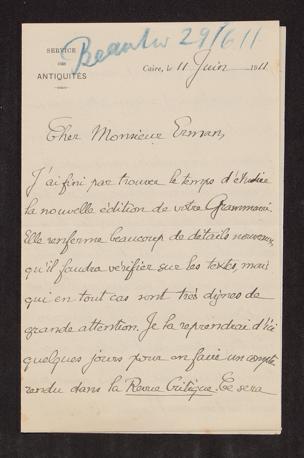 SERVICE
DES
ANTIQUITÉS
Beantw 29/6 11
Caire, le 11 Juin 1911
Cher Monsieur Erman,
J'ai fini par trouver le temps d'étudier
la nouvelle édition de votre Grammaire.
Elle renferme beaucoup de détails nouveaux,
qu'il faudra vérifier sur les textes, mais
qui en tout cas sont très dignes de
grande attention. Je la reprendrai d'ici
quelques jours pour en faire un compte
rendu dans la Revue Critique. Ce sera